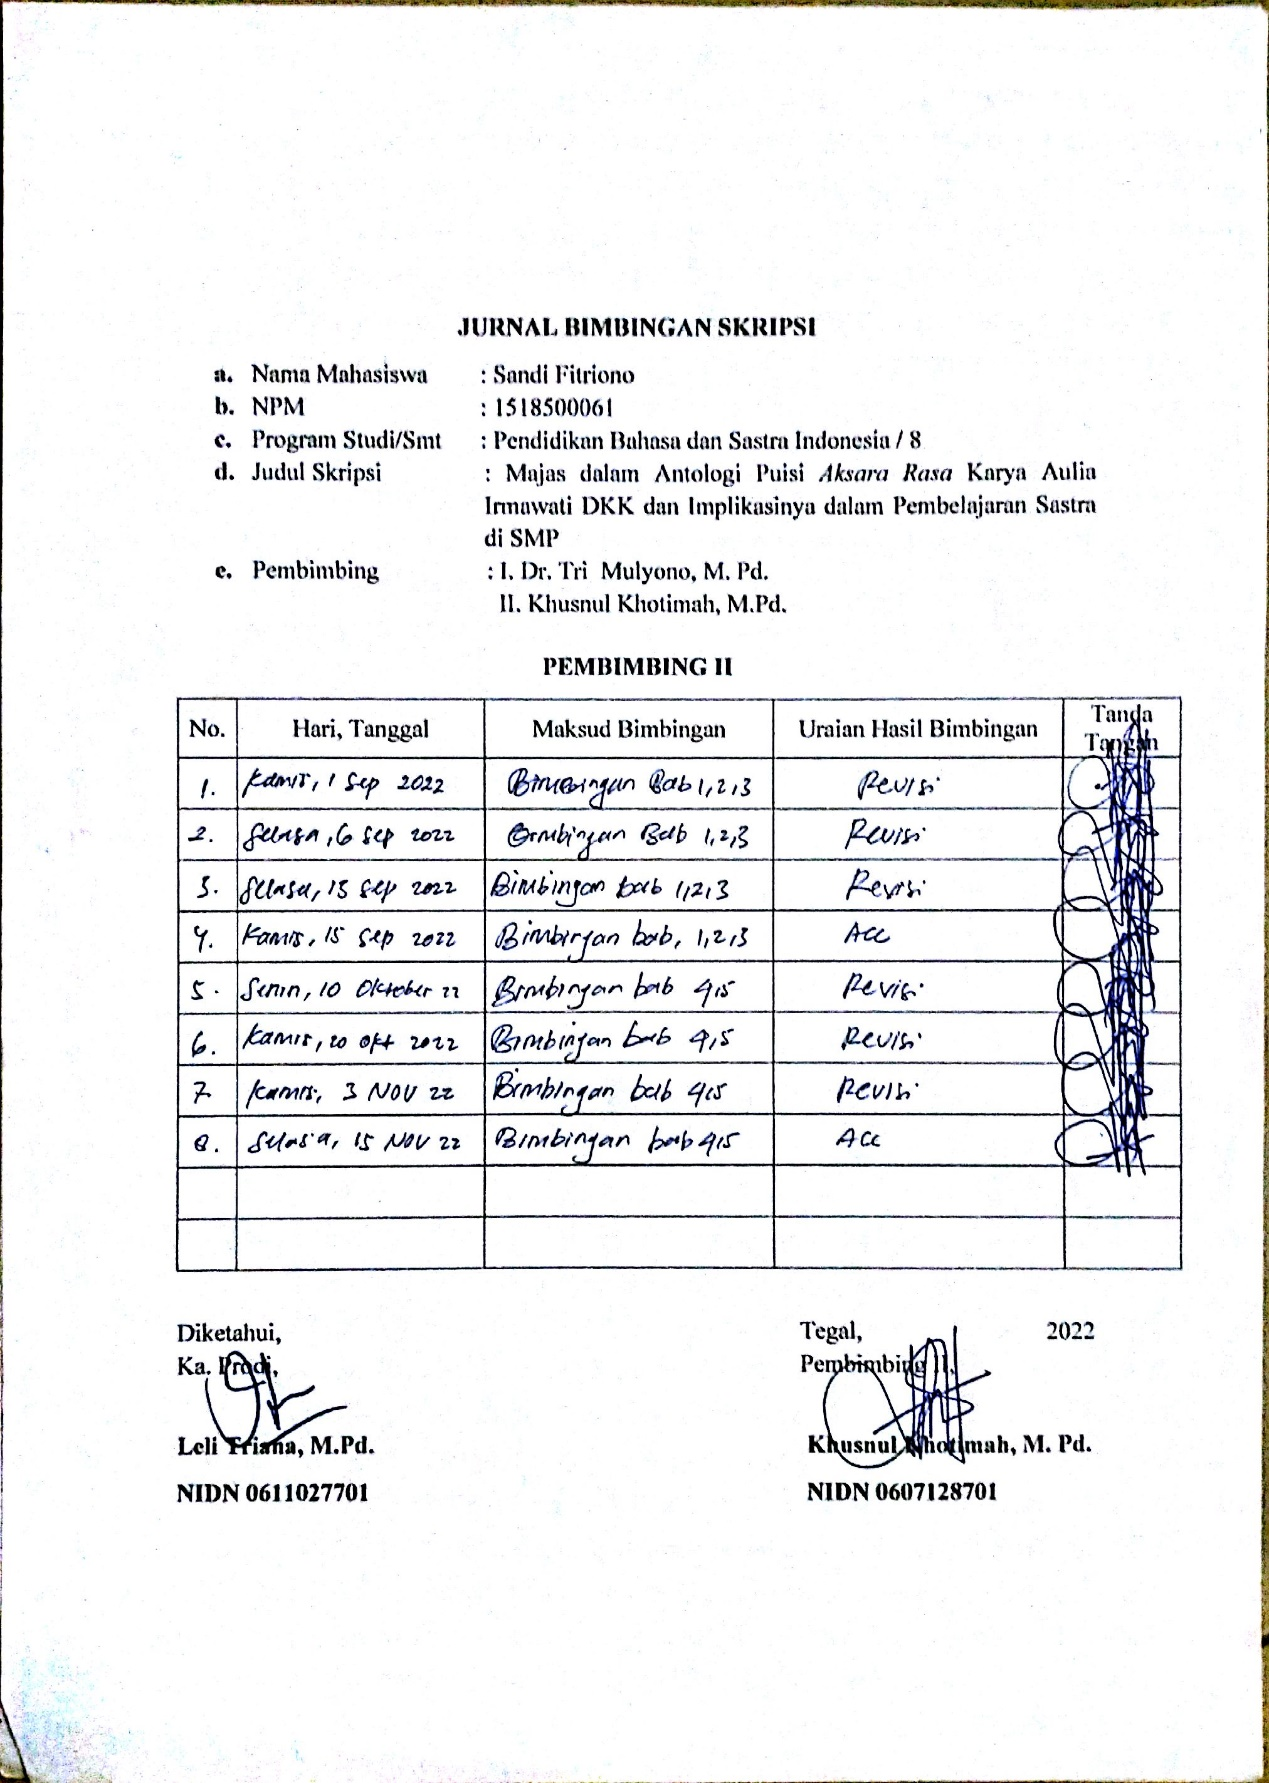 JURNAL BIMBINGAN SKRIPSI
a. Nama Mahasiswa : Sandi Fitriono
b. NPM : 1518500061
c. Program Studi/Smt : Pendidikan Bahasa dan Sastra Indonesia / 8
d. Judul Skripsi : Majas dalam Antologi Puisi Aksara Rasa Karya Aulia
Irmawati DKK dan Implikasinya dalam Pembelajaran Sastra
di SMP
e. Pembimbing : I. Dr. Tri Mulyono, M. Pd.
II. Khusnul Khotimah, M.Pd.
PEMBIMBING II
No. Hari, Tanggal Maksud Bimbingan Uraian Hasil Bimbingan Tanda Tangan
1. Kamis, 1 Sep 2022 Bimbingan Bab 1,2,3 Revisi
2. Selasa, 6 Sep 2022 Bimbingan Bab 1,2,3 Revisi
3. Selasa, 13 Sep 2022 Bimbingan bab 1,2,3 Revisi
4. Kamis, 15 Sep 2022 Bimbingan bab, 1,2,3 Acc
5. Senin, 10 Oktober 22 Bimbingan bab 4,5 Revisi
6. Kamis, 20 Okt 2022 Bimbingan bab 4,5 Revisi
7. Kamis, 3 NOV 22 Bimbingan bab 4,5 Revisi
8. Selasa, 15 NOV 22 Bimbingan bab 4,5 Acc
Diketahui,
Ka. Prodi,
Leli Triana, M.Pd.
NIDN 0611027701
Tegal, 2022
Pembimbing II,
Khusnul Khotimah, M. Pd.
NIDN 0607128701